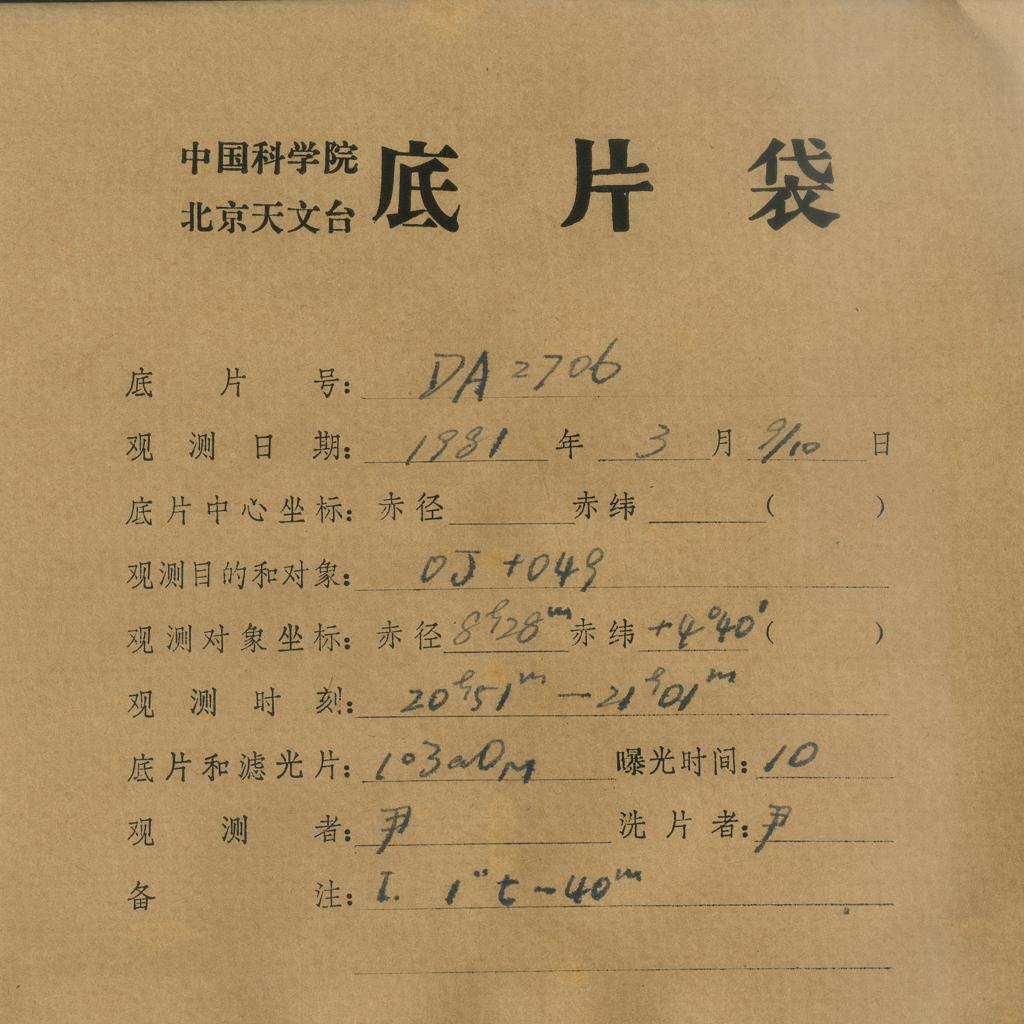 中国科学院
北京天文台
底片袋
底片号: DA2706
观测日期: 1981年 3月 9/10日
底片中心坐标: 赤径 赤纬 ( )
观测目的和对象: OJ +049
观测对象坐标: 赤径 8ʰ28ᵐ 赤纬 +4°40′ ( )
观测时刻: 20ʰ51ᵐ — 21ʰ01ᵐ
底片和滤光片: 103aO 曝光时间: 10
观测者: 尹 洗片者: 尹
备注: I. 1" t - 40ᵐ